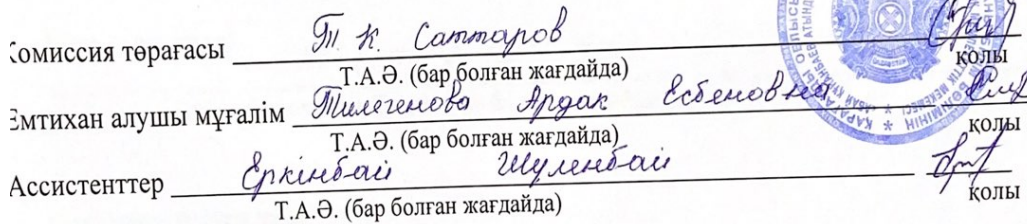 Комиссия төрағасы Т. К. Саттаров
Т.А.Ә. (бар болған жағдайда) қолы
Емтихан алушы мұғалім Тилегенова Ардак Есбеновна
Т.А.Ә. (бар болған жағдайда) қолы
Ассистенттер Еркінбай Шуленбай
Т.А.Ә. (бар болған жағдайда) қолы